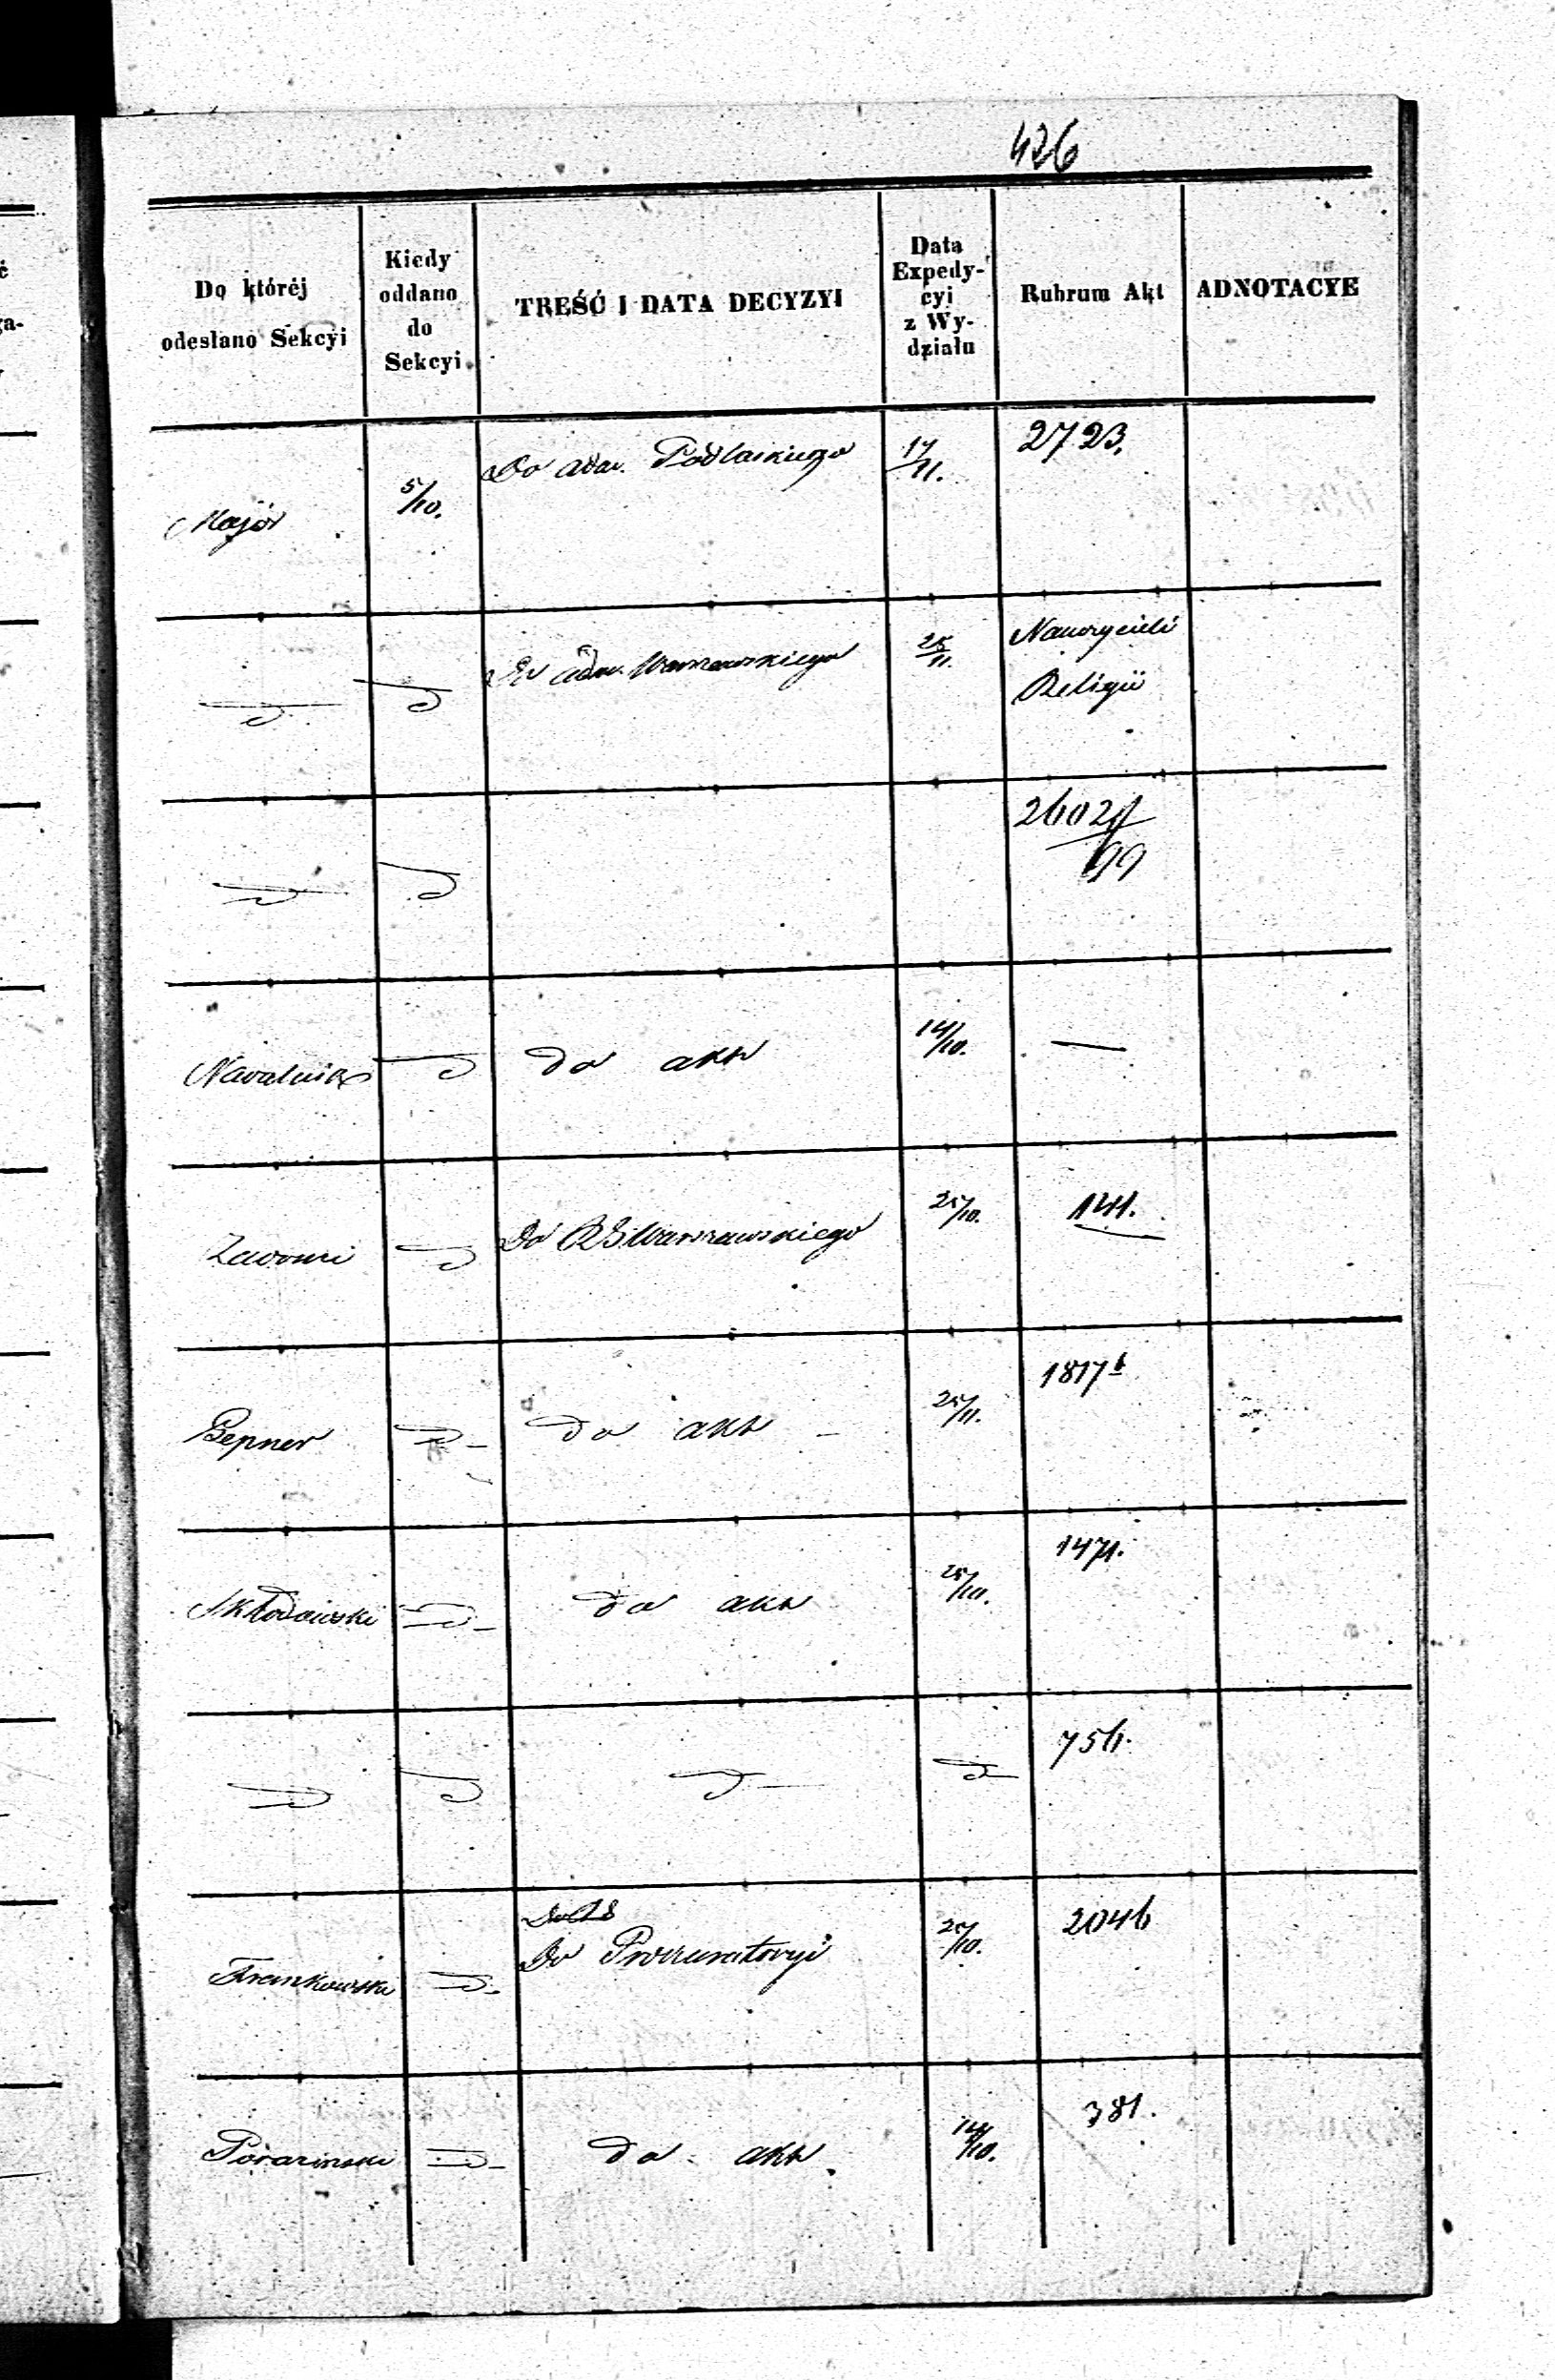 426
Do któréj
odesłano Sekcyi
Kiedy
oddano
do
Sekcyi
TREŚĆ I DATA DECYZYI
Data
Expedy-
cyi
z Wy-
działu
Rubrum Akt
ADNOTACYE
Major
5/10.
Do adm. Podlaskiego
17/11.
2723.
Do adm. Warszawskiego
25/11.
Nauczycieli
Religii
2602
/99
Nawalnik
do akt
14/10.
—
Do RG Warszawskiego
25/10.
1241.
Bepner
do akt
25/11.
1817 b
Skłodowski
do akt
25/10.
1471.
756.
Frankowski
Do Prokuratoryi
25/10.
2046
do akt
14/10.
381.